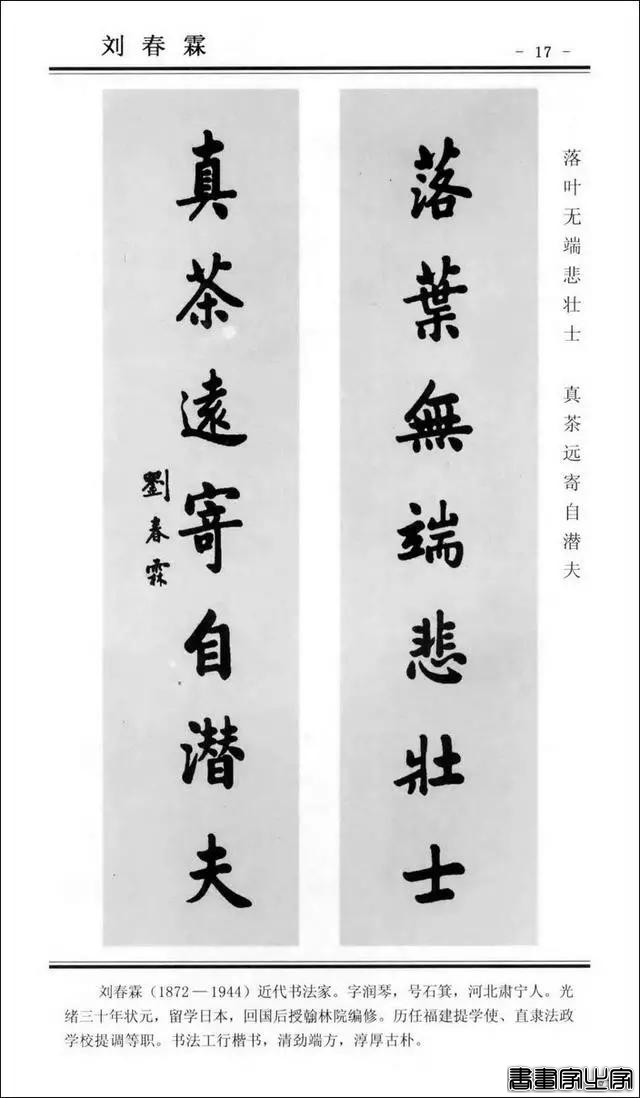 刘春霖
- 17 -
落叶无端悲壮士 真茶远寄自潜夫
落葉無端悲壯士
真茶遠寄自潜夫
劉春霖
刘春霖（1872—1944）近代书法家。字润琴，号石箕，河北肃宁人。光
绪三十年状元，留学日本，回国后授翰林院编修。历任福建提学使、直隶法政
学校提调等职。书法工行楷书，清劲端方，淳厚古朴。
書畫家必字